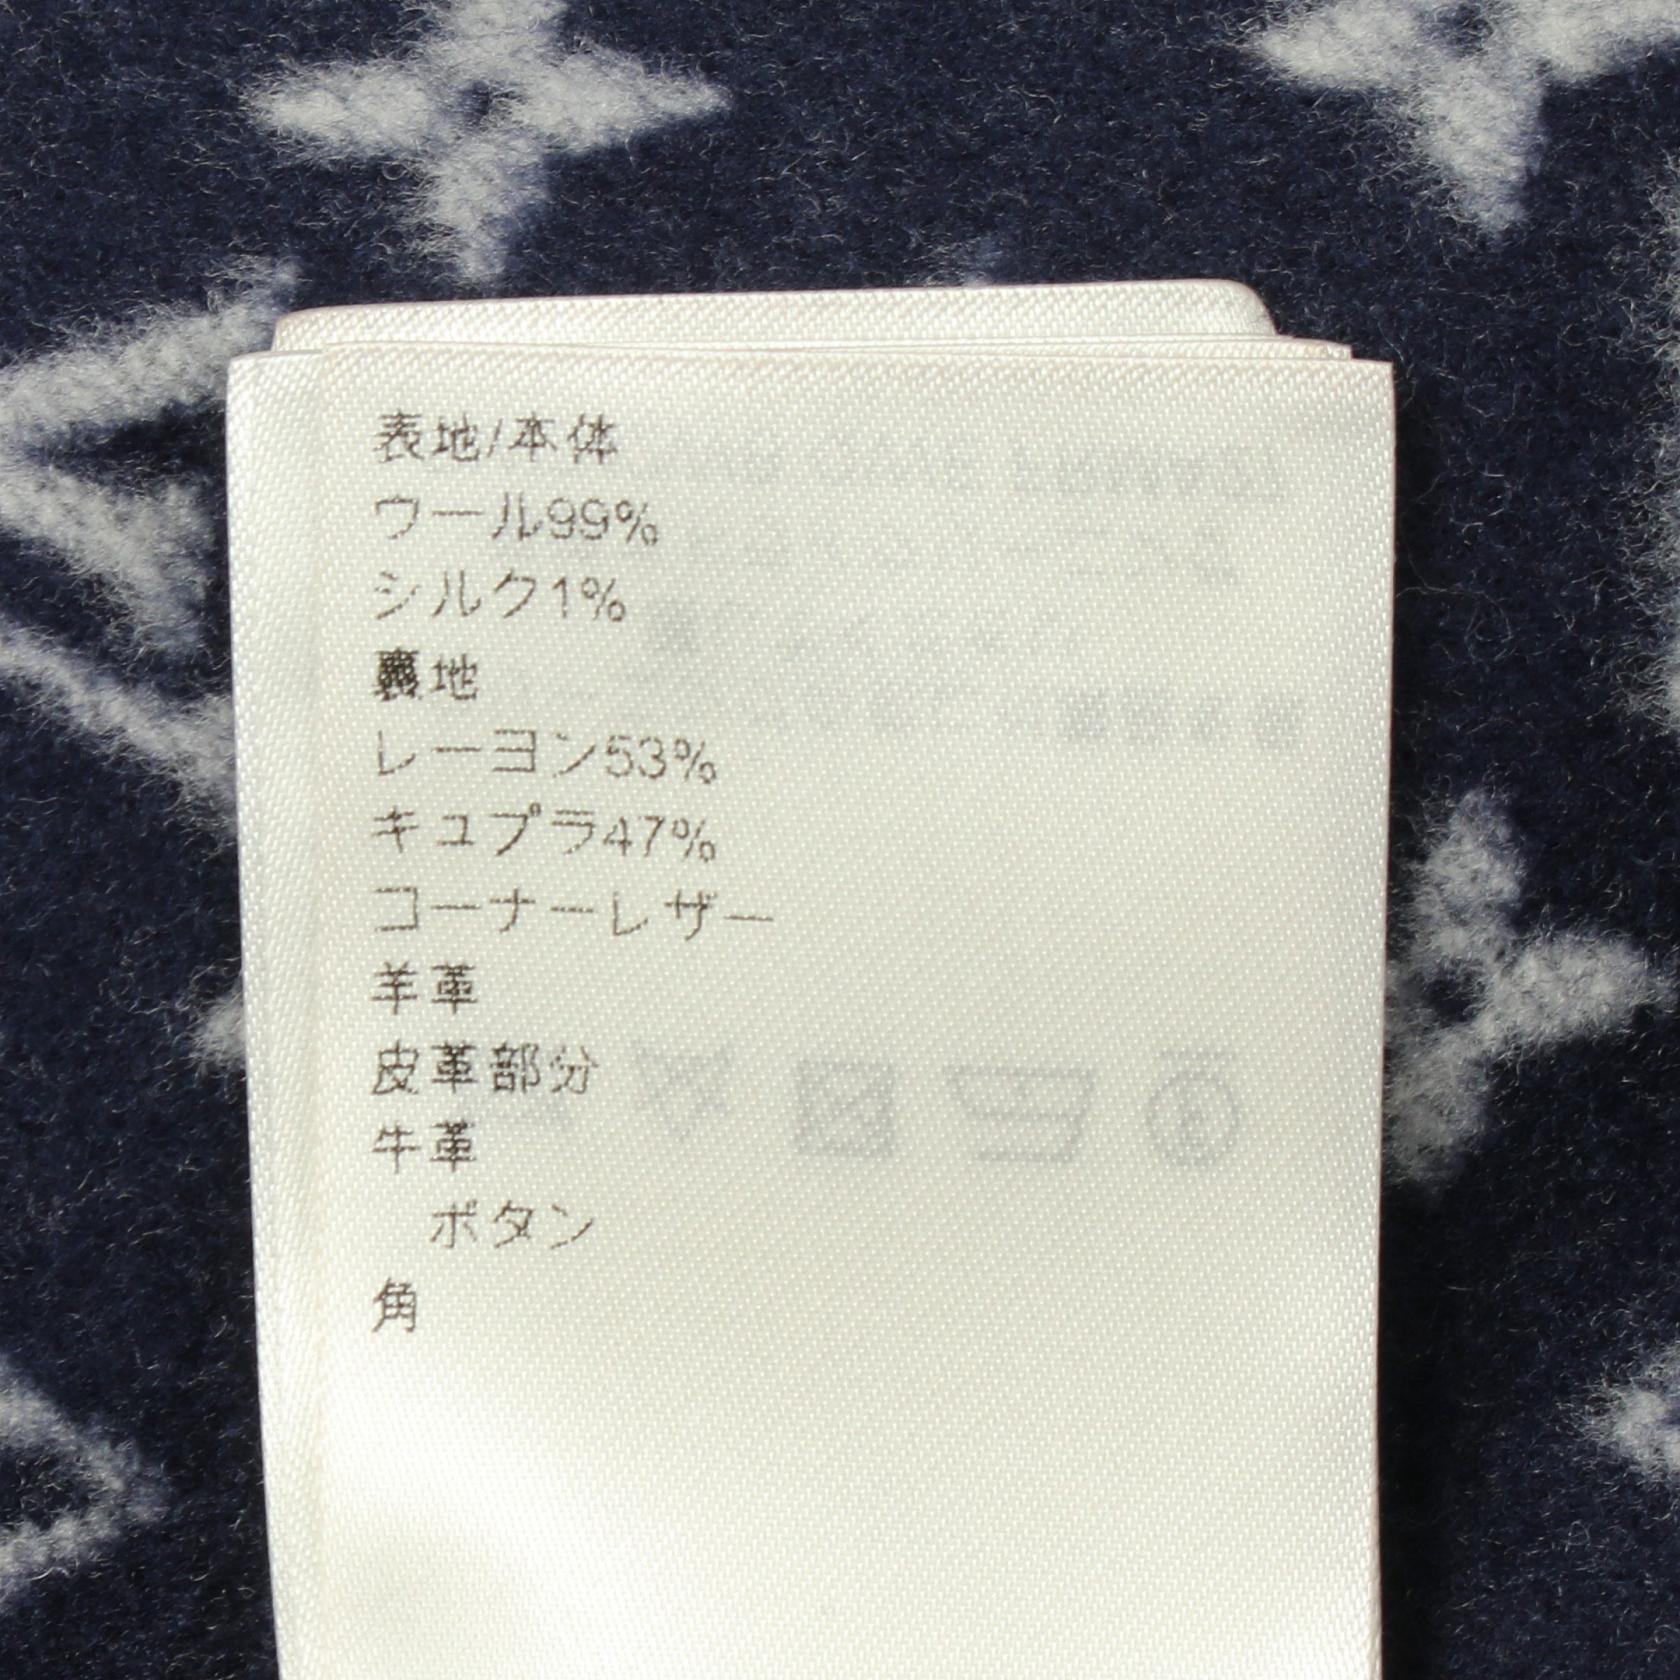 表地/本体
ウール99%
シルク1%
裏地
レーヨン53%
キュプラ47%
コーナーレザー
羊革
皮革部分
牛革
ボタン
角